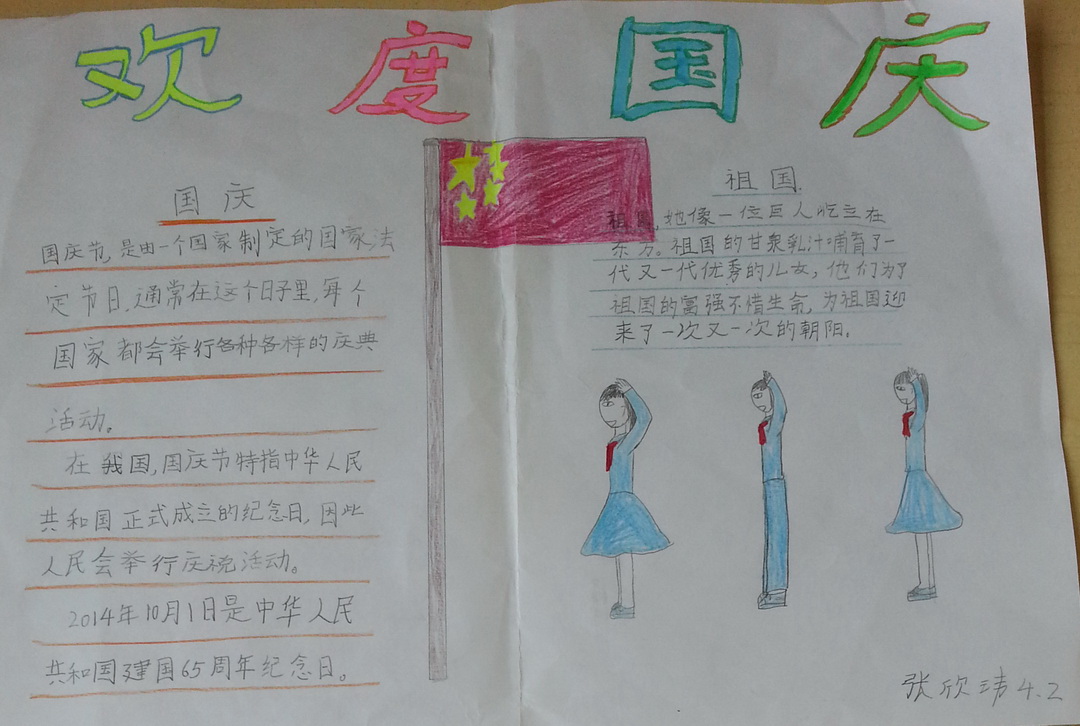 欢度国庆
国庆
国庆节,是由一个国家制定的国家法
定节日,通常在这个日子里,每个
国家都会举行各种各样的庆典
活动。
在我国,国庆节特指中华人民
共和国正式成立的纪念日,因此
人民会举行庆祝活动。
2014年10月1日是中华人民
共和国建国65周年纪念日。
祖国.
祖国,她像一位巨人屹立在
东方。祖国的甘泉乳汁浦育了一
代又一代优秀的儿女,他们为了
祖国的富强不惜生命,为祖国迎
来了一次又一次的朝阳。
张欣玮4.2